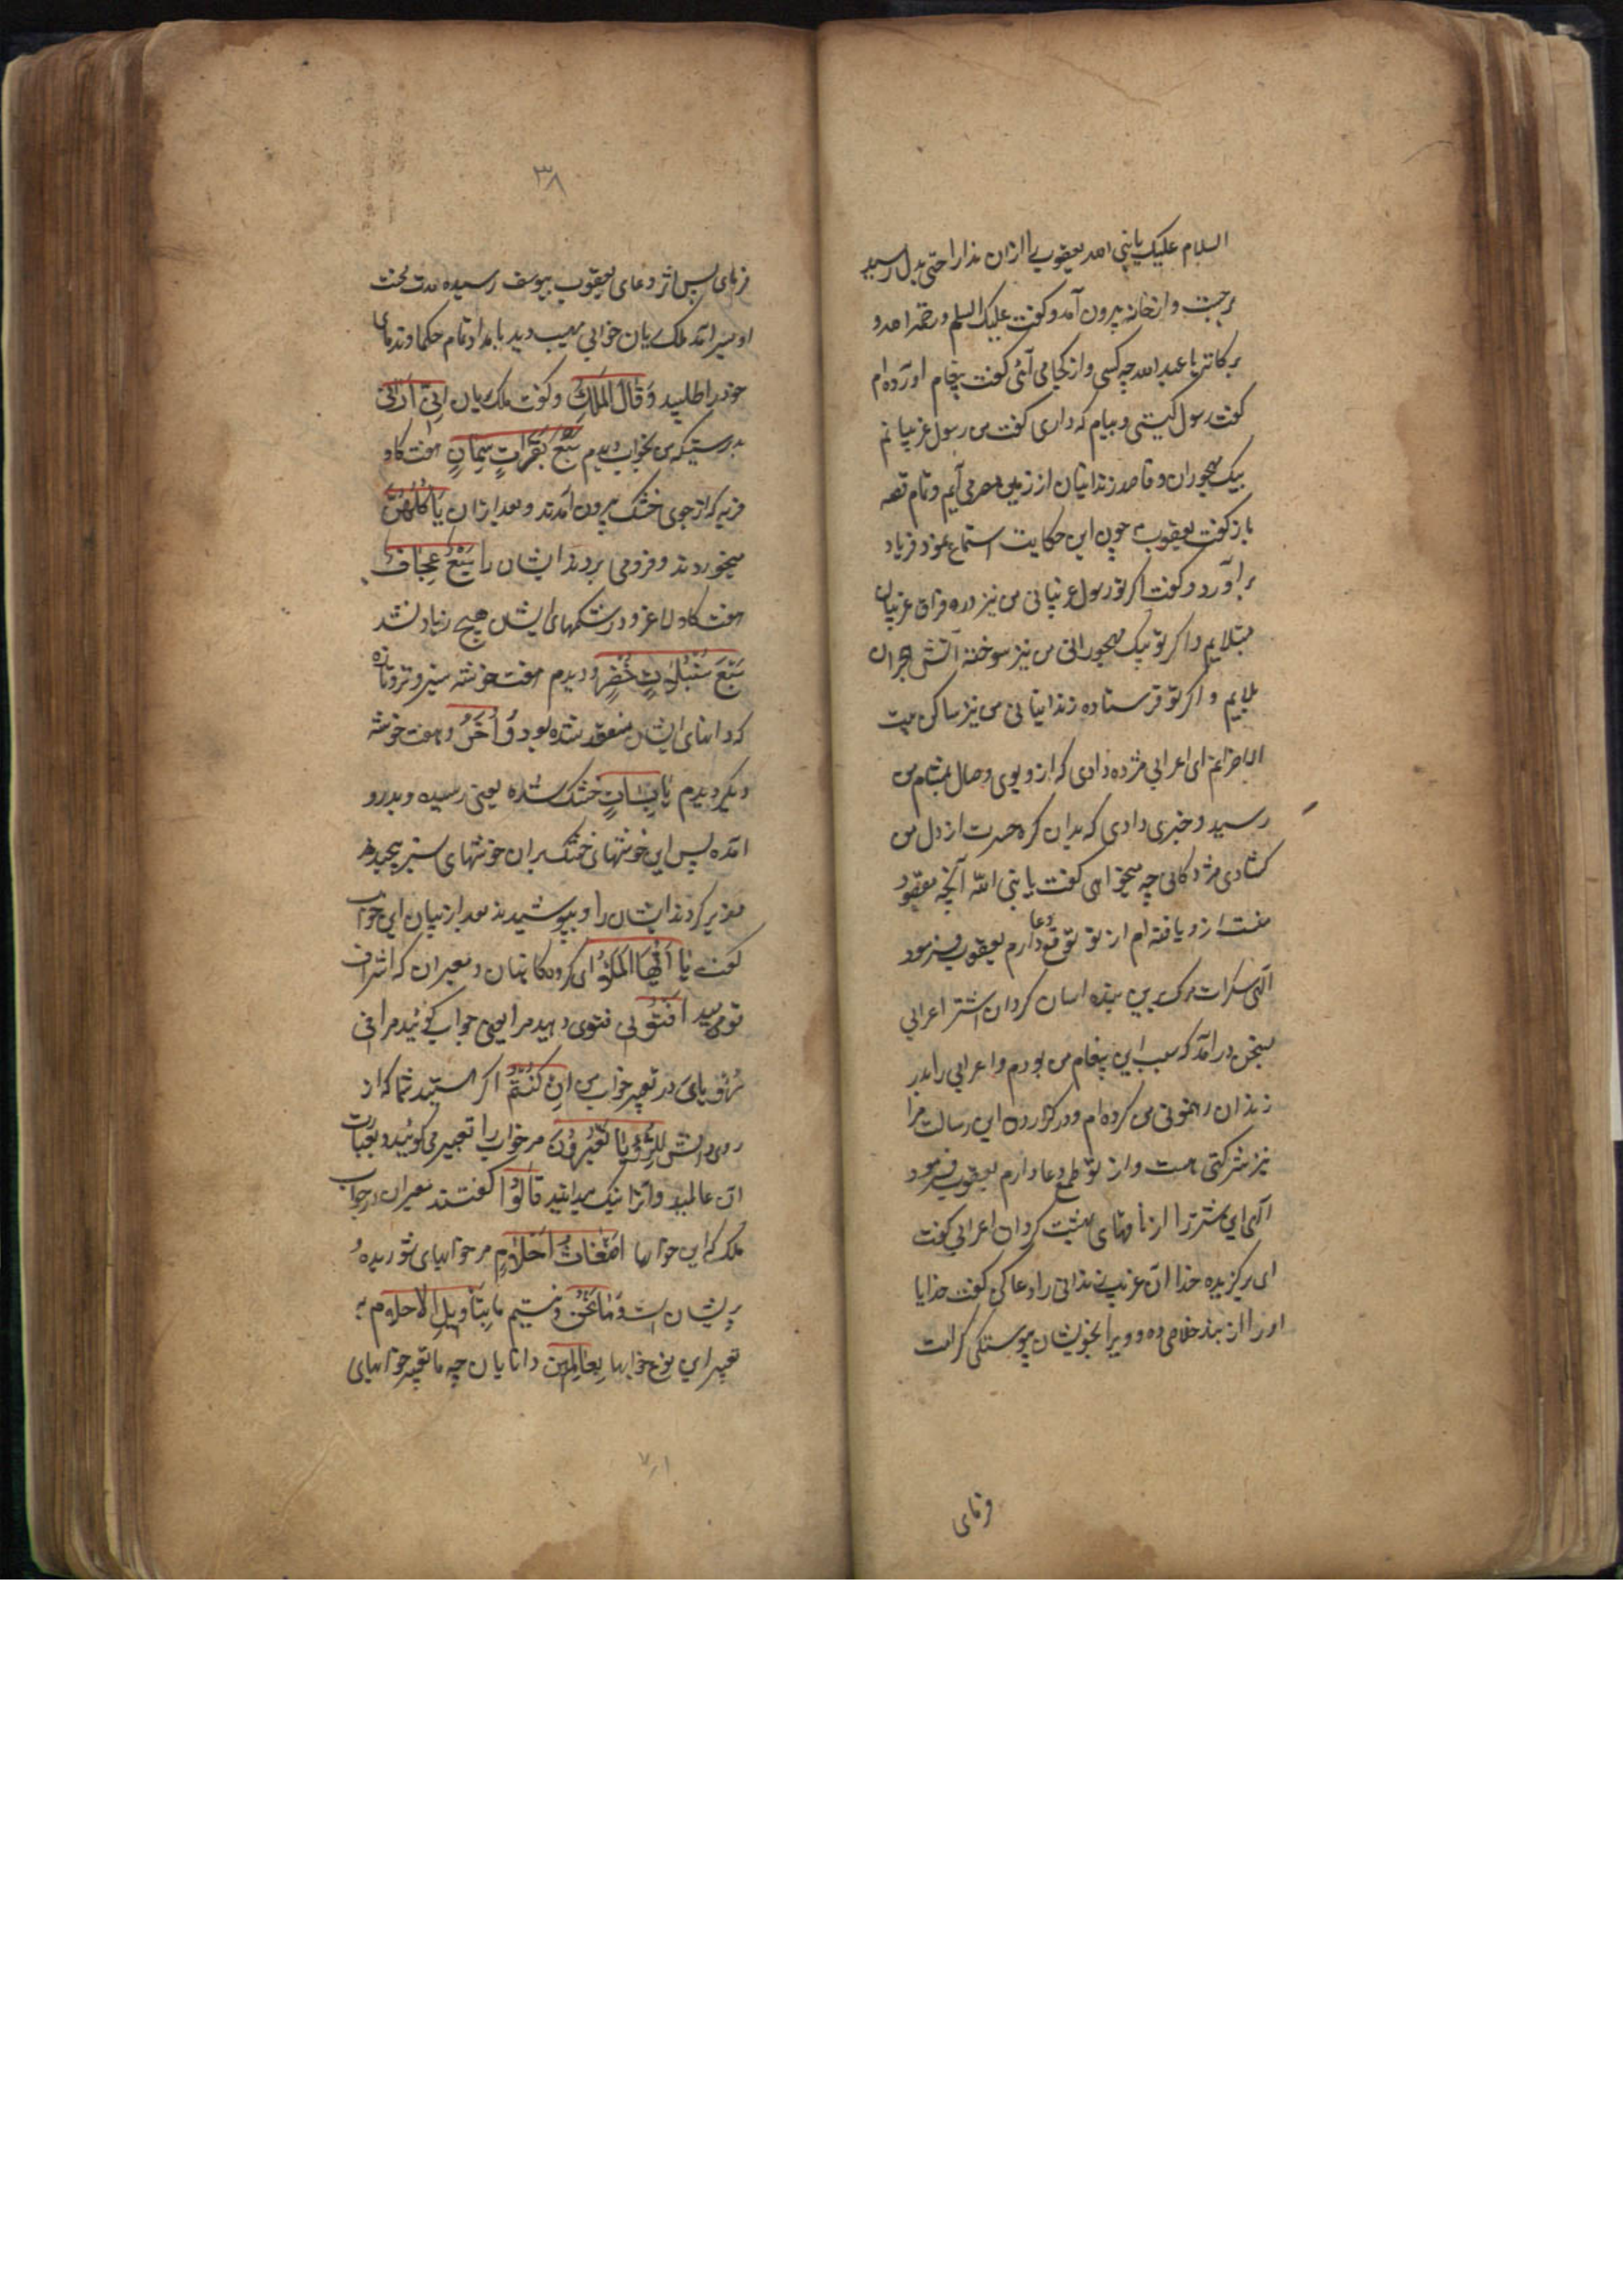 السلام علیک یا نبی الله یعقوب را ازان ندا راحتی بدل رسید
برجست و از خانه بیرون آمد و گفت علیک السلم و رحمة الله و
برکاته یا عبد الله چه کسی و از کجا می آئی گفت پیغام اورده ام
گفت رسول کیستی و پیام که داری گفت من رسول غریبانم
پیک مهجوران و قاصد زندانیان از زمین مصر می آیم و تمام قصه
باز گفت یعقوب چون این حکایت استماع نمود فریاد
براورد و گفت اگر تو رسول غریبانی من نیز درد فراق غریبان
مبتلایم و اگر تو پیک مهجورانی من نیز سوخته آتش هجران
بلایم و اگر تو فرستاده زندانیانی من نیز ساکن بیت
الاحزانم ای اعرابی مژده دادی که ازو بوی وصال بمشام من
رسید و خبری دادی که بدان گره حسرت از دل من
گشادی مژدگانی چه میخواهی گفت یا نبی الله آنچه مقصود
منست ازو یافته ام از تو توقع دعا دارم یعقوب فرمود
الهی سکرات مرگ برین بنده اسان گردان اشتر اعرابی
بسخن درآمد که سبب این پیغام من بودم و اعرابی را بدر
زندان رهنمونی من کرده ام و در گزاردن این رسالت مرا
نیز شرکتی هست و از تو طمع دعا دارم یعقوب فرمود
الهی این شتر را از ناقهای بهشت گردان اعرابی گفت
ای برگزیده خدا ان غریب زندانی را دعا کن گفت خدایا
او را از بند خلاصی ده و ویرا بخویشان پیوستگی کرامت
فرمای
۳۸
فرمای پس اثر دعای یعقوب بیوسف رسیده مدت محنت
او بسر امد ملک ریان خوابی مهیب دید بامداد تمام حکما و ندمای
خود را طلبید وَقَالَ الْمَلِكُ و گفت ملک ریان اِنِّي اَرٰى
بدرستیکه من بخواب دیدم سَبْعَ بَقَرَاتٍ سِمَانٍ هفت گاو
فربه که از جوی خشک بیرون آمدند و بعد ازان يَأْكُلُهُنَّ
میخوردند و فرو می بردند ایشان را سَبْعٌ عِجَافٌ
هفت گاو لاغر و در شکمهای ایشان هیچ زیاد نشد
سَبْعَ سُنْبُلٰتٍ خُضْرٍ و دیدم هفت خوشه سبز و تروتازه
که دانهای ایشان منعقد شده بود وَاُخَرَ و هفت خوشه
دیگر دیدم يَابِسَاتٍ خشک شده یعنی رسیده و بدرو
امده پس این خوشهای خشک بران خوشهای سبز پیچیدند
کردند ایشان را و بپوشیدند بعد از بیان این خواب
گفت يَا اَيُّهَا الْمَلَاُ ای گروه کاهنان و معبران که اشراف
قوم منید اَفْتُونِي فتوی دهید مرا یعنی جواب گوئید مرا فِي
رُؤْيَايَ در تعبیر خواب من اِنْ كُنْتُمْ اگر هستید شما که از
روی دانش لِلرُّؤْيَا تَعْبُرُونَ مر خواب را تعبیر می گوئید و بعبارت
ان عالمید و انرا نیک میدانید قَالُوا گفتند معبران در جواب
ملک که این خوابها اَضْغَاثُ اَحْلَامٍ مر خوابهای شوریده و
پریشان است وَمَا نَحْنُ و نیستیم ما بِتَأْوِيلِ الْاَحْلَامِ به
تعبیر این نوع خوابها بِعَالِمِينَ دانایان چه ما تعبیر خوابهای